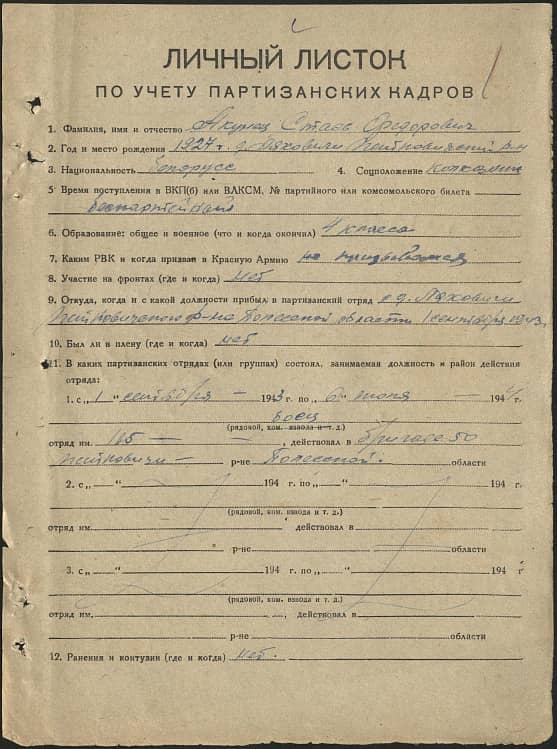 ЛИЧНЫЙ ЛИСТОК
ПО УЧЕТУ ПАРТИЗАНСКИХ КАДРОВ
1. Фамилия, имя и отчество Акулич Стась Федорович
2. Год и место рождения 1927 г. д. Ляховичи Житковичский р-н
3. Национальность белорусс 4. Соцположение колхозник
5 Время поступления в ВКП(б) или ВЛКСМ, № партийного или комсомольского билета
беспартейный
6. Образование: общее и военное (что и когда окончил) 4 класса
7. Каким РВК и когда призван в Красную Армию не призывался
8. Участие на фронтах (где и когда) нет
9. Откуда, когда и с какой должности прибыл в партизанский отряд с д. Ляховичи
Житковичского р-на Полесской области 1 сентября 1943 г.
10. Был ли в плену (где и когда) нет
11. В каких партизанских отрядах (или группах) состоял, занимаемая должность и район действия
отряда:
1. с „1“ сентября — 1943 г. по „6“ июля — 1944 г.
боец
(рядовой, ком. взвода и т. д.)
отряд им. — — , действовал в бригаде 50
Житковичи — р-не Полесской. области
2. с „ — “ 194 г. по „ — “ 194 г
(рядовой, ком. взвода и т. д.)
отряд им. действовал в
р-не области
3. с „ — “ 194 г. по „ — “ 194 г
(рядовой, ком. взвода и т. д.)
отряд им. , действовал в
р-не области
12. Ранения и контузии (где и когда) нет.